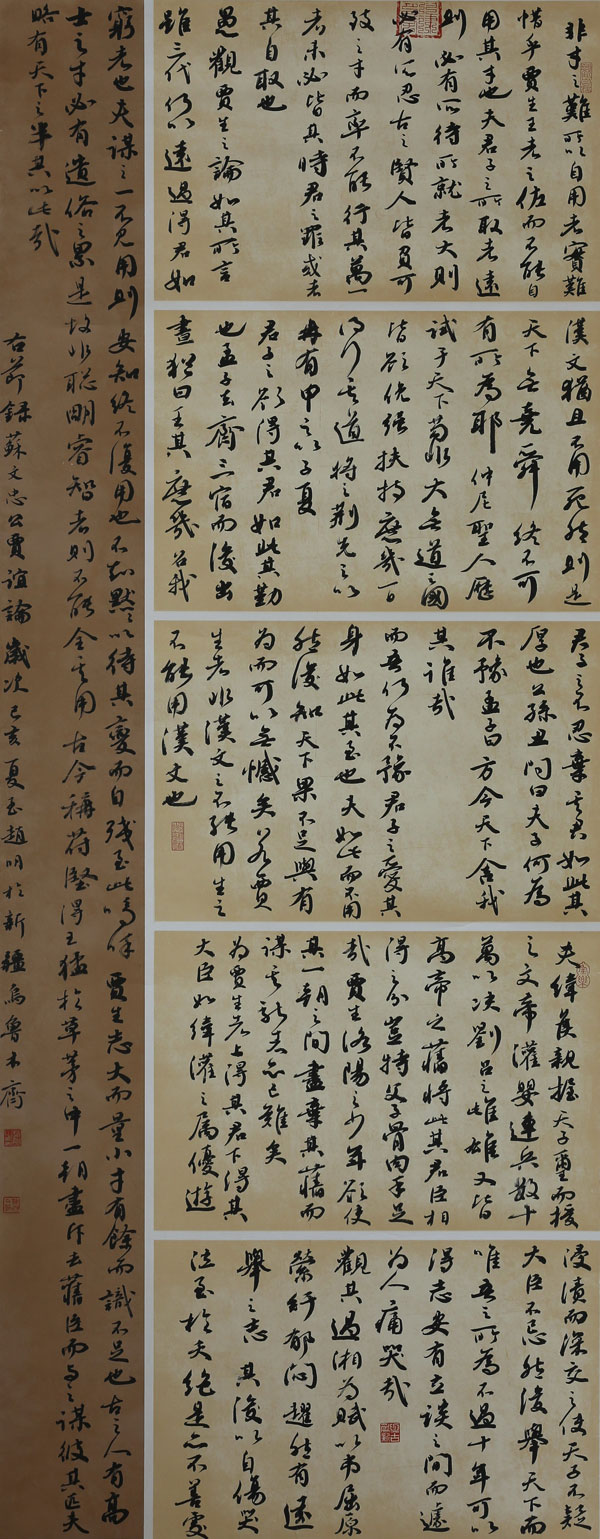 非才之難所以自用者實難
惜乎賈生王者之佐而不能自
用其才也夫君子之所取者遠
則必有所待所就者大則
必有所忍古之賢人皆負可
致之才而卒不能行其萬一
者未必皆其時君之罪或者
其自取也
愚觀賈生之論如其所言
雖三代何以遠過得君如
漢文猶且不用死然則是
天下無堯舜終不可
有所為耶仲尼聖人歷
試于天下苟非大無道之國
皆欲勉強扶持庶幾一日
得行其道將之荆先之以
冉有申之以子夏
君子之欲得其君如此其勤
也孟子去齊三宿而後出
晝猶曰王其庶幾召我
君子之不忍棄其君如此其
厚也公孫丑問曰夫子何為
不豫孟子曰方今天下舍我
其誰哉
而吾何為不豫君子之愛其
身如此其至也夫如此而不用
然後知天下果不足與有
為而可以無憾矣若賈
生者非漢文之不能用生之
不能用漢文也
夫絳侯親握天子璽而授
之文帝灌嬰連兵數十
萬以決劉呂之雌雄又皆
高帝之舊將此其君臣相
得之分豈特父子骨肉手足
哉賈生洛陽之少年欲使
其一朝之間盡棄其舊而
謀其新者亦已難矣
為賈生者上得其君下得其
大臣如絳灌之属優游
浸漬而深交之使天子不疑
大臣不忌然後舉天下而
唯吾之所為不過十年可以
得志安有立談之間而遽
為人痛哭哉
觀其過湘為賦以弔屈原
縈紆郁悶趯然有遠
舉之志其後以自傷哭
泣至於夭絕是亦不善處
窮者也夫謀之一不見用則安知終不復用也不知默之以待其變而自殘至此嗚呼賈生志大而量小才有餘而識不足也古之人有高
士之才必有遺俗之累是故非聰明睿智者則不能全其用古今稱苻堅得王猛於草茅之中一朝盡斥去舊臣而與之謀彼其匹夫
略有天下之半其以此哉
右節錄蘇文忠公賈誼論歲次己亥夏至趙明於新疆烏魯木齊